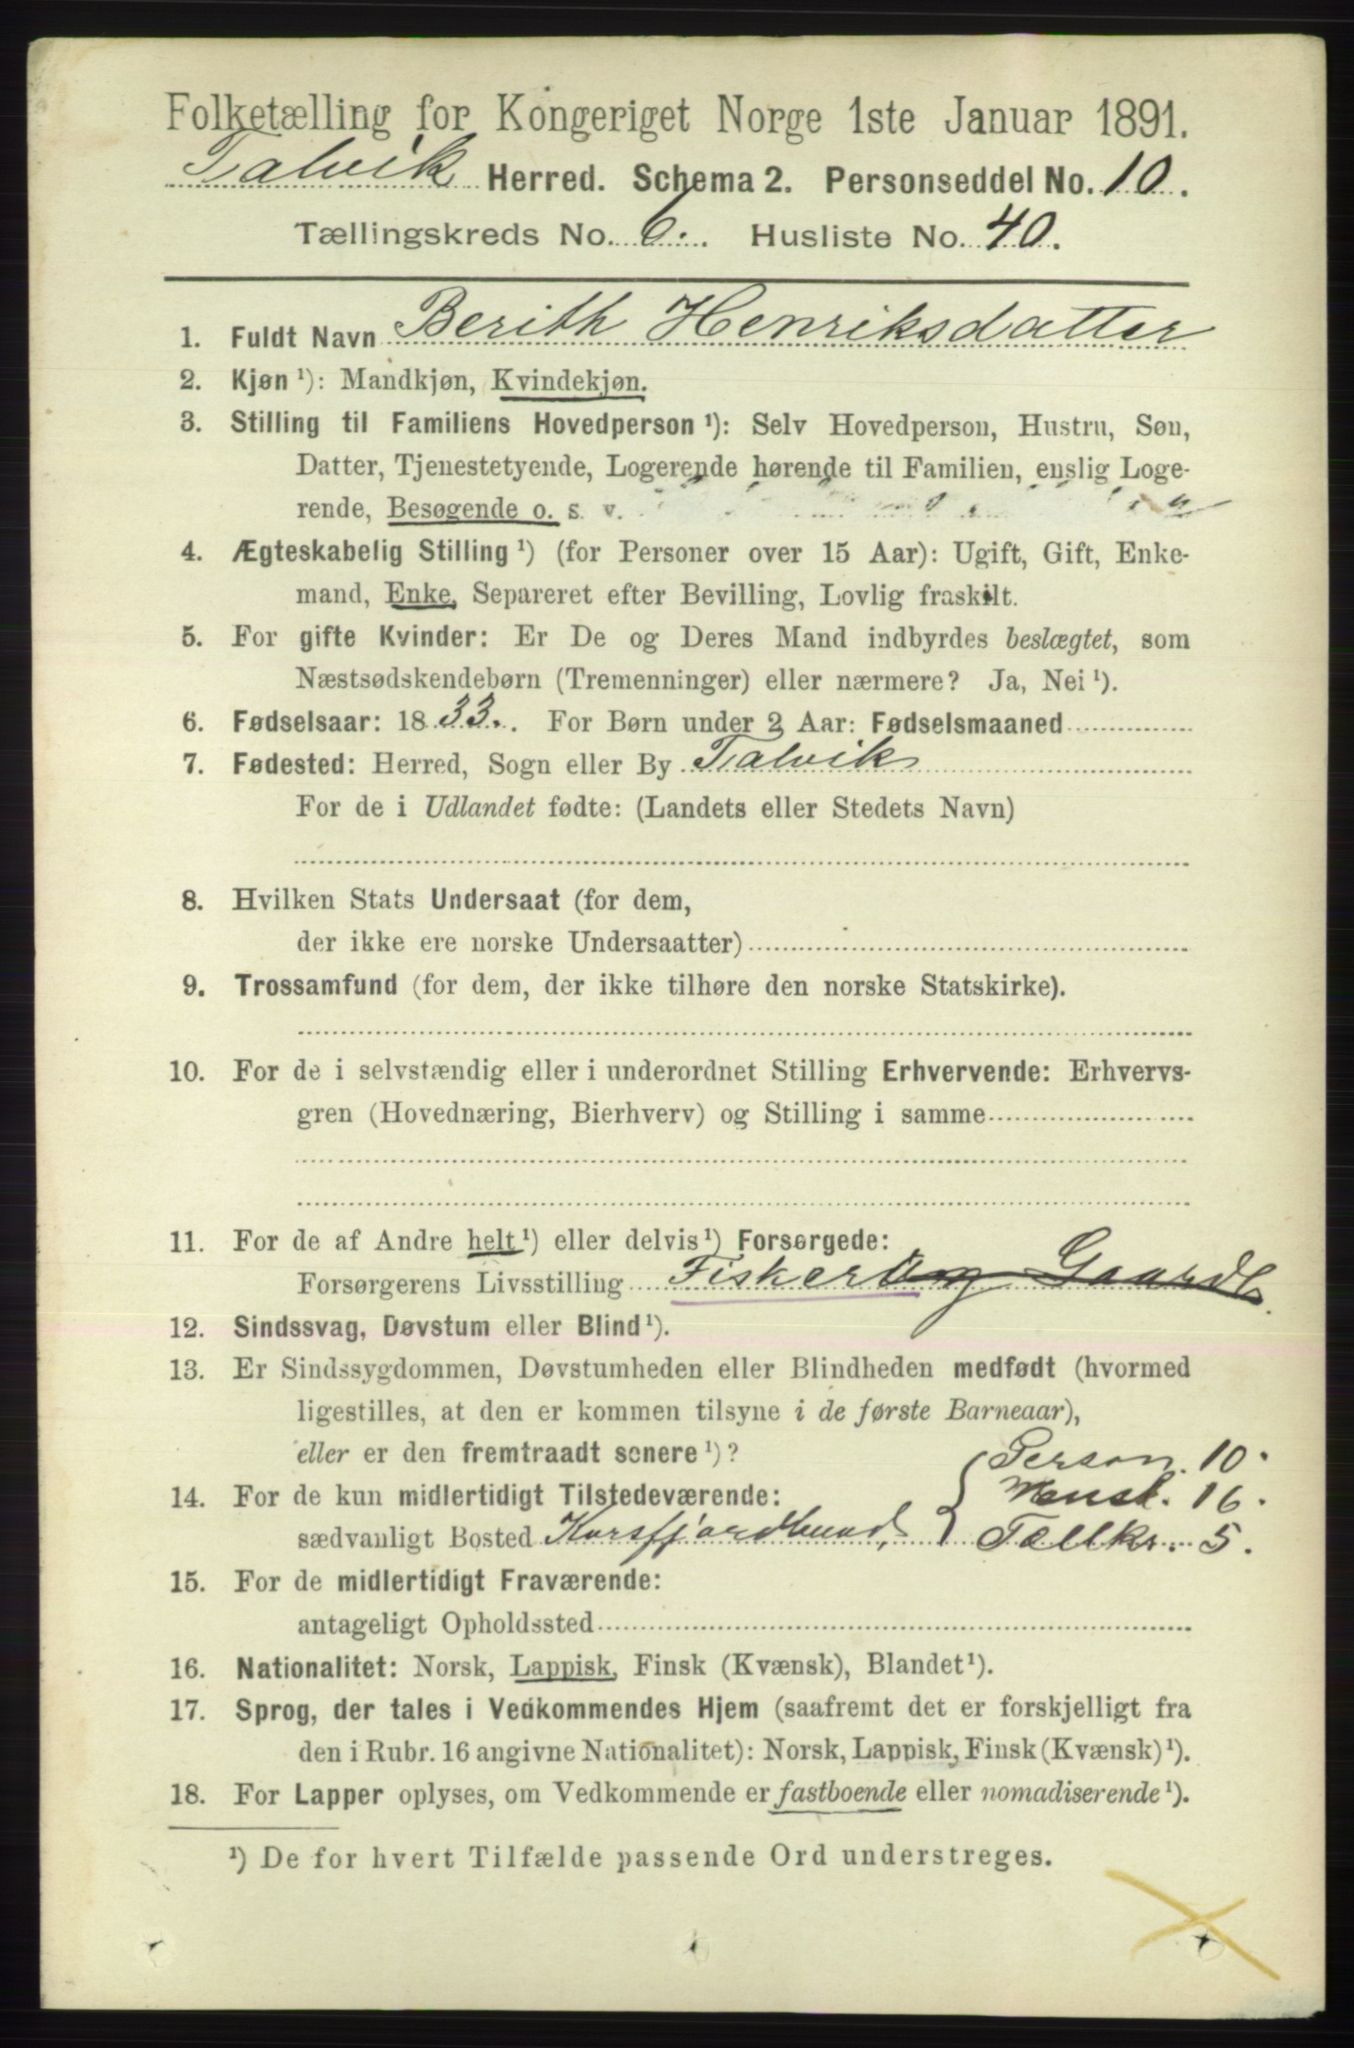 Folketælling for Kongeriget Norge 1ste Januar 1891.
Talvik Herred. Schema 2. Personseddel No. 10.
Tællingskreds No. 6. Husliste No. 40.
1. Fuldt Navn Berith Henriksdatter
2. Kjøn ¹): Mandkjøn, Kvindekjøn.
3. Stilling til Familiens Hovedperson ¹): Selv Hovedperson, Hustru, Søn,
Datter, Tjenestetyende, Logerende hørende til Familien, enslig Loge-
rende, Besøgende o. s. v.
4. Ægteskabelig Stilling ¹) (for Personer over 15 Aar): Ugift, Gift, Enke-
mand, Enke, Separeret efter Bevilling, Lovlig fraskilt.
5. For gifte Kvinder: Er De og Deres Mand indbyrdes beslægtet, som
Næstsødskendebørn (Tremenninger) eller nærmere? Ja, Nei ¹).
6. Fødselsaar: 1833. For Børn under 2 Aar: Fødselsmaaned
7. Fødested: Herred, Sogn eller By Talvik
For de i Udlandet fødte: (Landets eller Stedets Navn)
8. Hvilken Stats Undersaat (for dem,
der ikke ere norske Undersaatter)
9. Trossamfund (for dem, der ikke tilhøre den norske Statskirke).
10. For de i selvstændig eller i underordnet Stilling Erhvervende: Erhvervs-
gren (Hovednæring, Bierhverv) og Stilling i samme
11. For de af Andre helt ¹) eller delvis ¹) Forsørgede:
Forsørgerens Livsstilling Fisker og Gaardb.
12. Sindssvag, Døvstum eller Blind ¹).
13. Er Sindssygdommen, Døvstumheden eller Blindheden medfødt (hvormed
ligestilles, at den er kommen tilsyne i de første Barneaar),
eller er den fremtraadt senere ¹)? Person. 10.
14. For de kun midlertidigt Tilstedeværende: Husl. 16.
sædvanligt Bosted Korsfjordbund, Tællkr. 5.
15. For de midlertidigt Fraværende:
antageligt Opholdssted
16. Nationalitet: Norsk, Lappisk, Finsk (Kvænsk), Blandet ¹).
17. Sprog, der tales i Vedkommendes Hjem (saafremt det er forskjelligt fra
den i Rubr. 16 angivne Nationalitet): Norsk, Lappisk, Finsk (Kvænsk) ¹).
18. For Lapper oplyses, om Vedkommende er fastboende eller nomadiserende ¹).
¹) De for hvert Tilfælde passende Ord understreges.